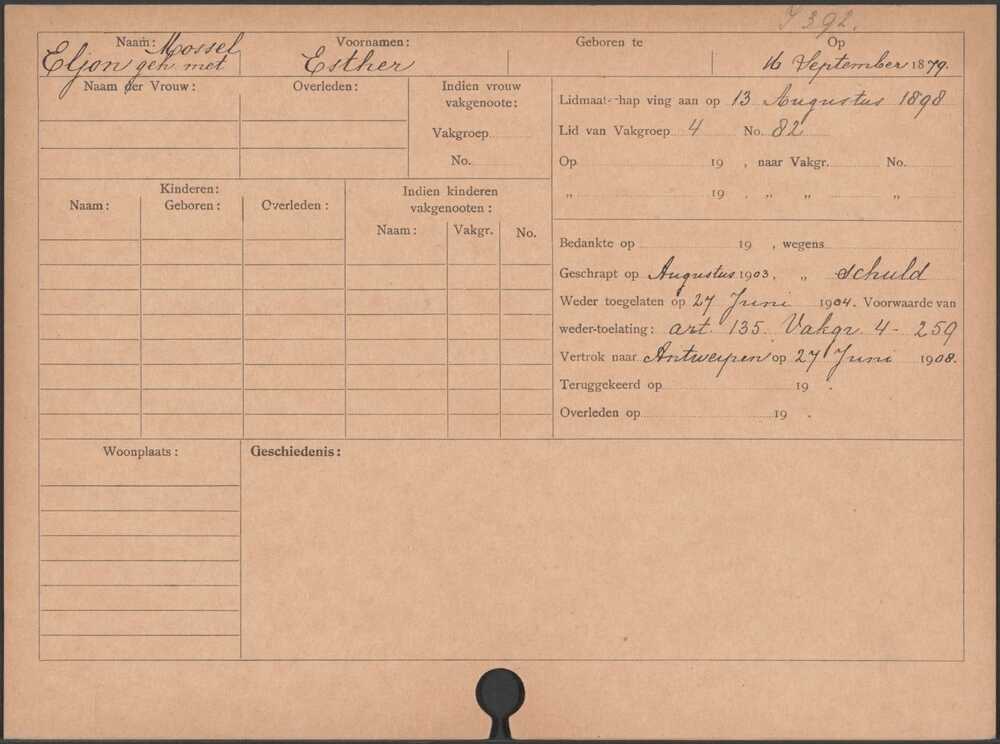 J 392.
Naam: Mossel Voornamen: Geboren te Op
Eljon geh. met Esther 16 September 1879.
Naam der Vrouw: Overleden: Indien vrouw vakgenoote:
Vakgroep
No.
Lidmaatschap ving aan op 13 Augustus 1898
Lid van Vakgroep 4 No. 82
Op 19 , naar Vakgr. No.
„ 19 , „ „ „
Kinderen: Indien kinderen vakgenooten:
Naam: Geboren: Overleden: Naam: Vakgr. No.
Bedankte op 19 , wegens
Geschrapt op Augustus 1903, „ schuld
Weder toegelaten op 27 Juni 1904. Voorwaarde van
weder-toelating: art. 135. Vakgr. 4 - 259
Vertrok naar Antwerpen op 27 Juni 1908.
Teruggekeerd op 19 .
Overleden op 19 .
Woonplaats: Geschiedenis: